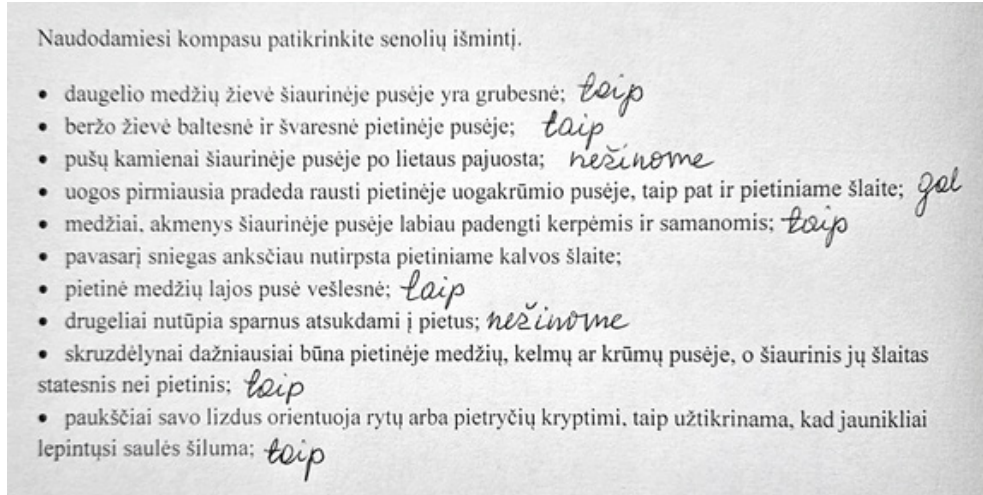 Naudodamiesi kompasu patikrinkite senolių išmintį.
• daugelio medžių žievė šiaurinėje pusėje yra grubesnė; taip
• beržo žievė baltesnė ir švaresnė pietinėje pusėje; taip
• pušų kamienai šiaurinėje pusėje po lietaus pajuosta; nežinome
• uogos pirmiausia pradeda rausti pietinėje uogakrūmio pusėje, taip pat ir pietiniame šlaite; gal
• medžiai, akmenys šiaurinėje pusėje labiau padengti kerpėmis ir samanomis; taip
• pavasarį sniegas anksčiau nutirpsta pietiniame kalvos šlaite;
• pietinė medžių lajos pusė vešlesnė; taip
• drugeliai nutūpia sparnus atsukdami į pietus; nežinome
• skruzdėlynai dažniausiai būna pietinėje medžių, kelmų ar krūmų pusėje, o šiaurinis jų šlaitas
statesnis nei pietinis; taip
• paukščiai savo lizdus orientuoja rytų arba pietryčių kryptimi, taip užtikrinama, kad jaunikliai
lepintųsi saulės šiluma; taip